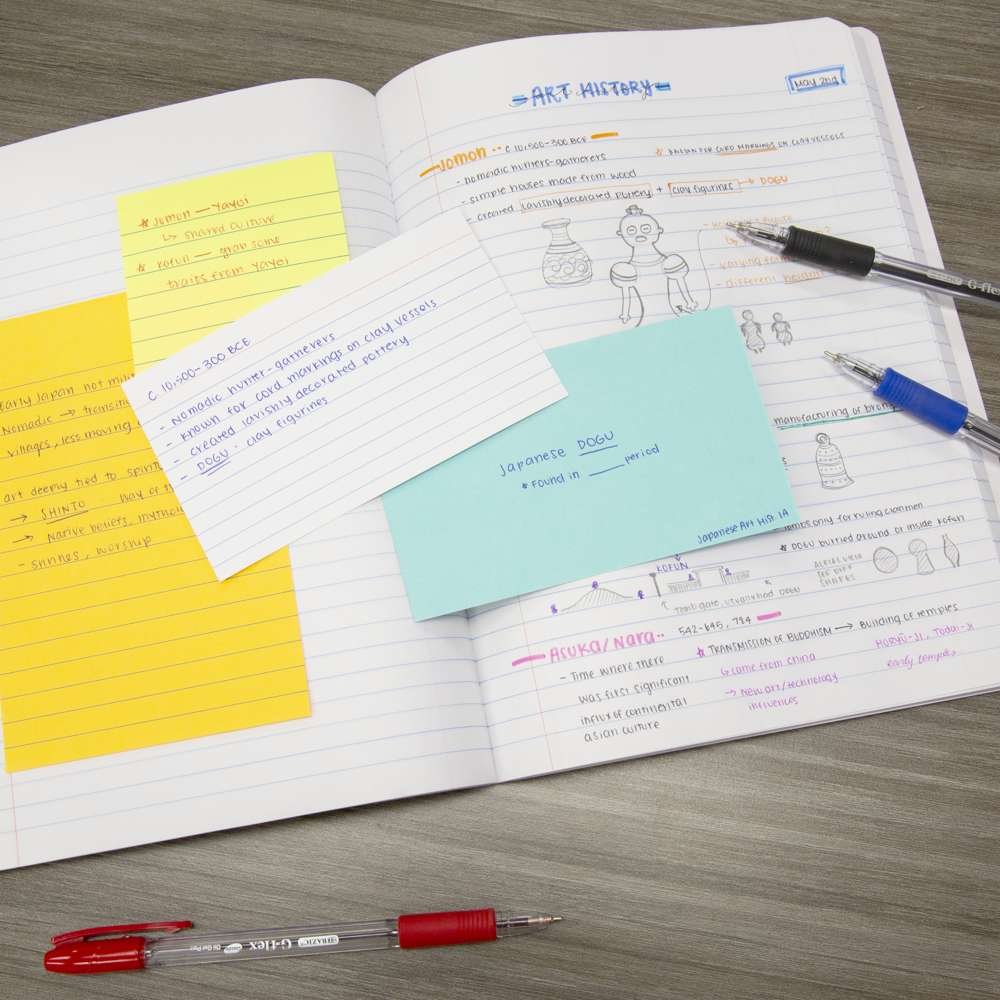 * Jomon — Yayoi
↳ shared culture
* Kofun — grab some
traits from Yayoi
Early Japan not
Nomadic →
villages, less moving
art deeply tied to
→ SHINTO
→ Native beliefs,
- shrines, worship
C 10,500-300 BCE
- Nomadic hunter-gatherers
- Known for cord markings on clay vessels
- created lavishly decorated pottery
- DOGU - clay figurines
Japanese DOGU
* Found in ____ period
Japanese Art Hist. 1A
ART HISTORY
May 2nd
Jomon ·· C 10,500-300 BCE
- nomadic hunters-gatherers
- simple houses made from wood
- created lavishly decorated pottery + clay figurines → DOGU
* KNOWN FOR CORD MARKINGS ON CLAY VESSELS
- different
manufacturing of
Tombs only for ruling clanmen
* DOGU burried around or inside Kofun
AERIAL VIEW
KOFUN
Tomb gate, usually had DOGU
Asuka/Nara·· 542-645, 784
- Time where there
was first significant
influx of continental
asian culture
* TRANSMISSION OF BUDDHISM → Building of temples
↳ came from China
→ New art/technology
influences
HORYŪ-JI, Todai-Ji
early temples
G-flex
BAZIC G-flex Oil Gel Pen